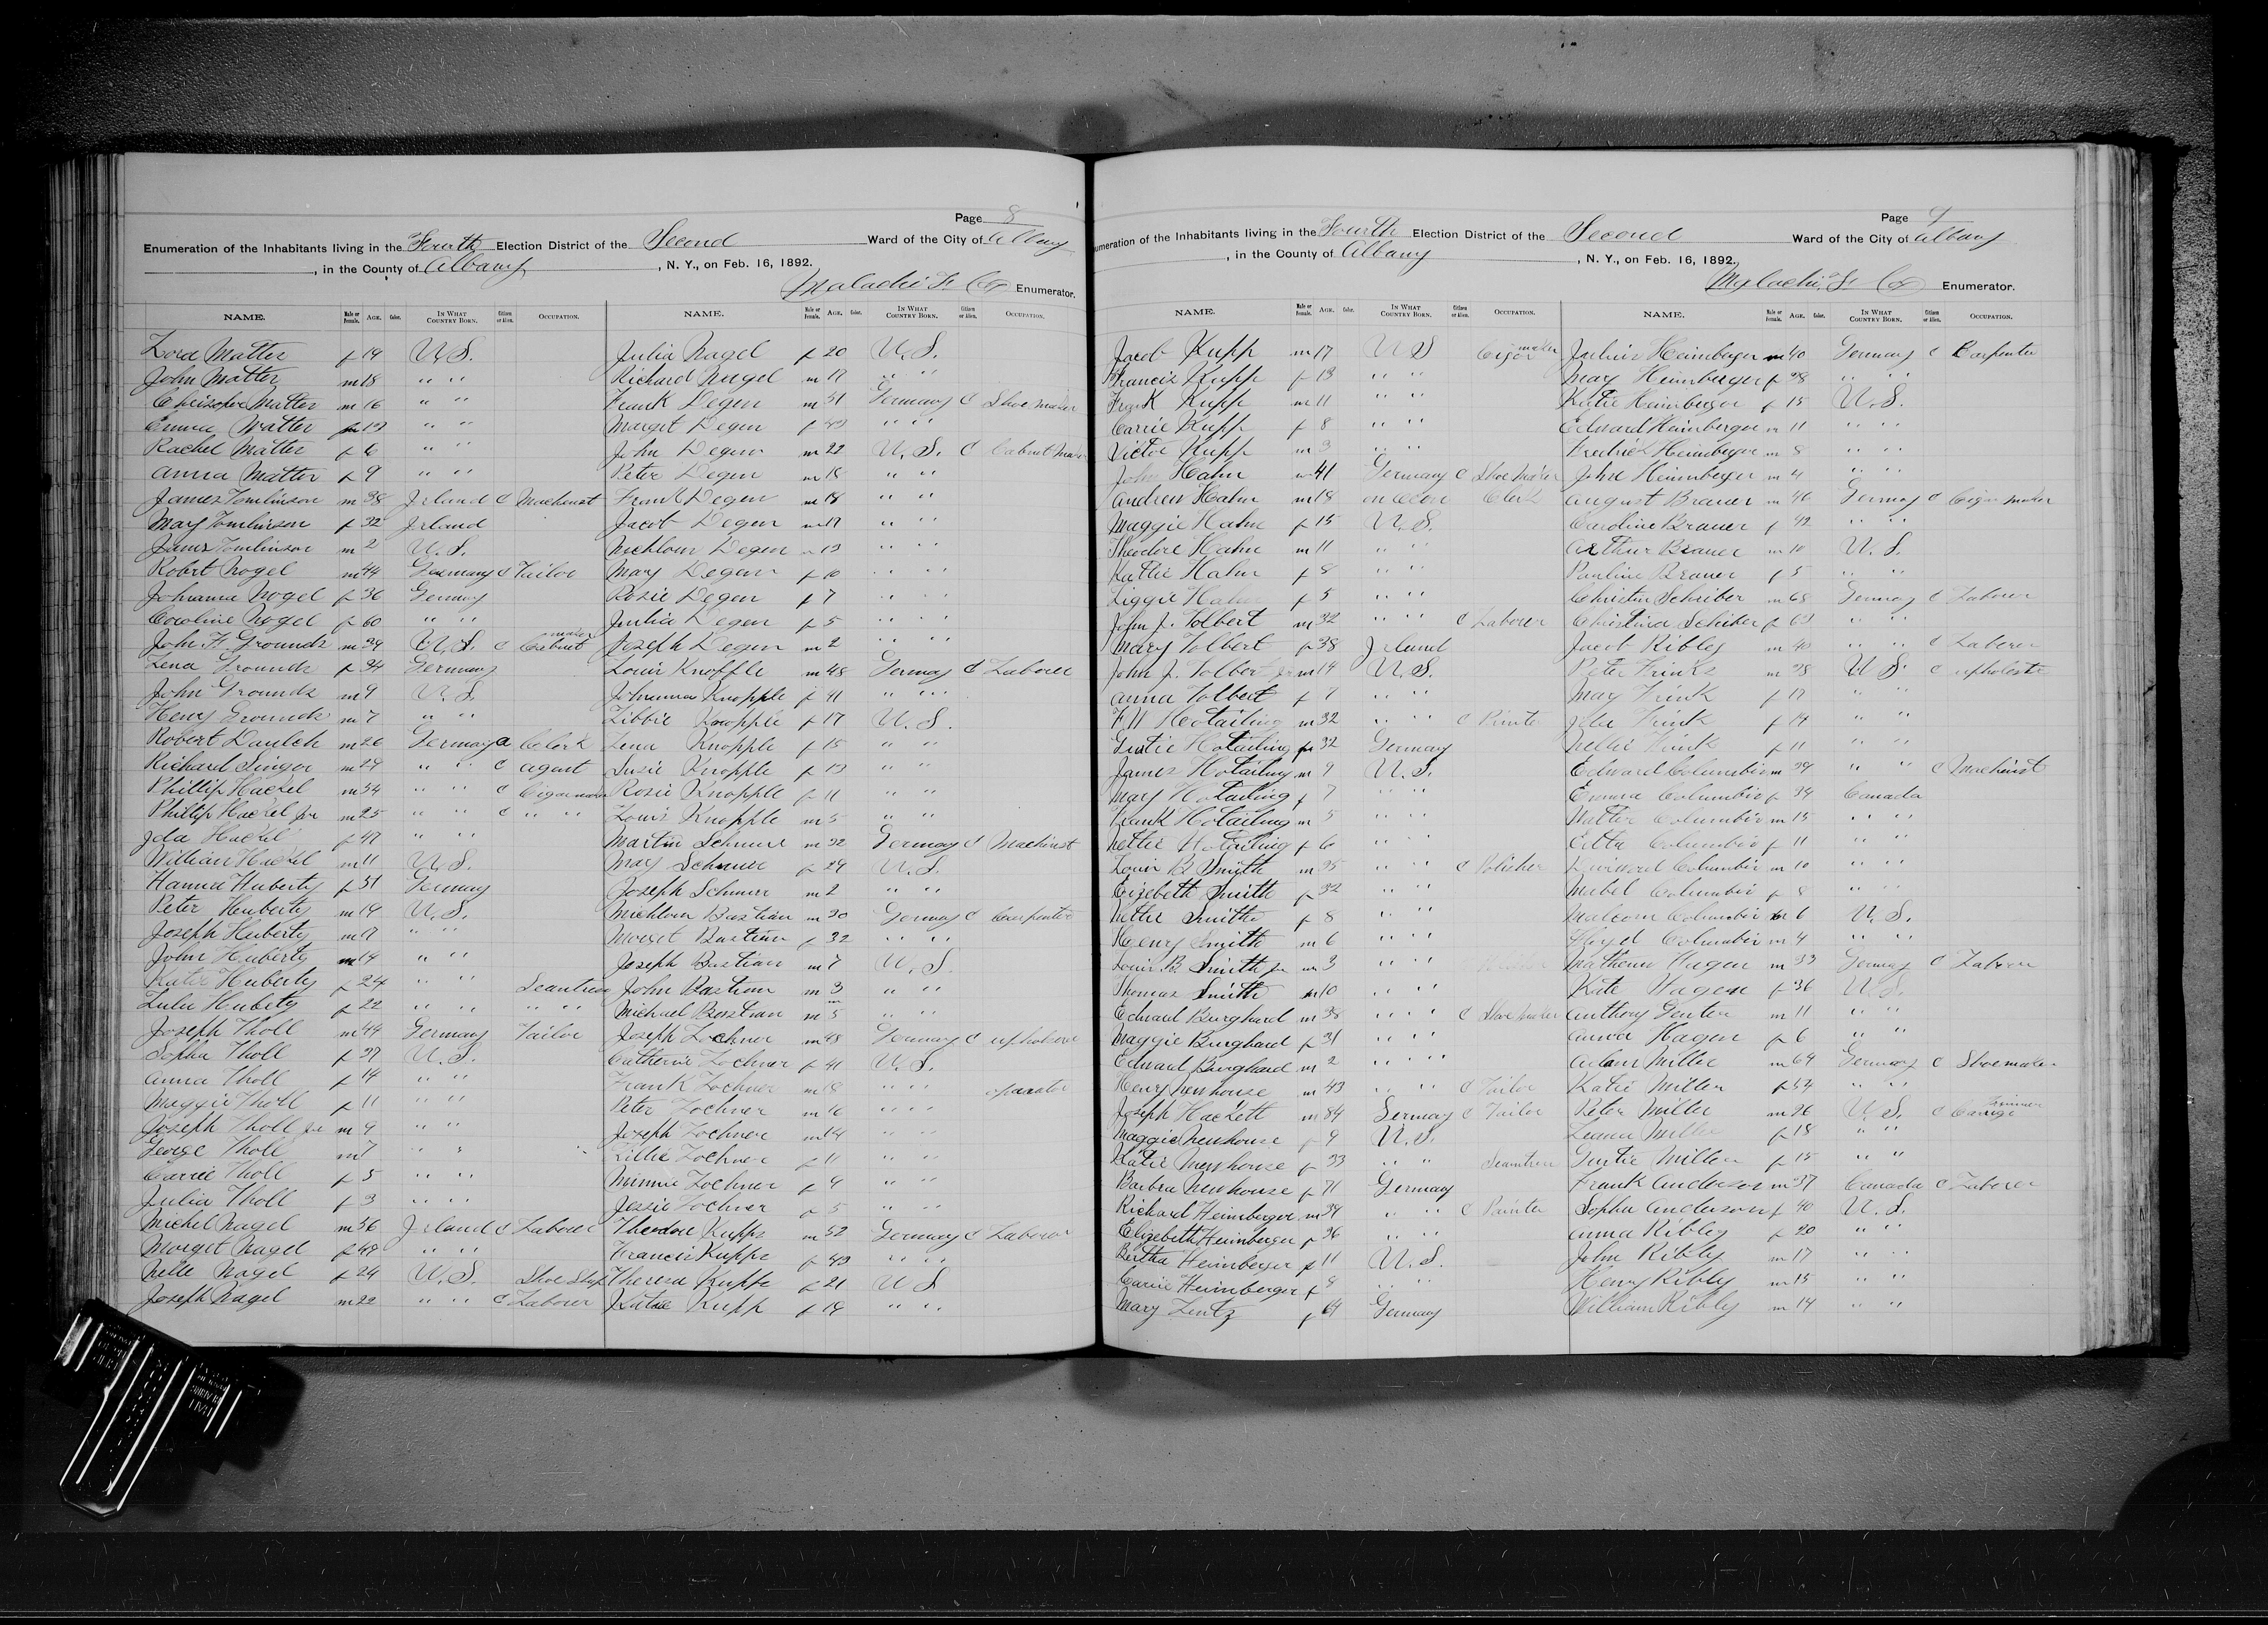 Page 8
Enumeration of the Inhabitants living in the Fourth Election District of the Second Ward of the City of Albany
, in the County of Albany, N. Y., on Feb. 16, 1892.
Malachi F. Cox Enumerator.
NAME. Male or Female. AGE. Color. IN WHAT COUNTRY BORN. Citizen or Alien. OCCUPATION.
Matter f 19 U.S.
John Matter m 18 " "
Matter m 16 " "
Emma Matter f 13 " "
Rachel Matter f 6 " "
Anna Matter f 9 " "
James Tomlinson m 38 Irland C Machinst
Mary Tomlinson f 32 Irland
James Tomlinson m 2 U.S.
Robrt Nogel m 44 Germany C Tailor
Johanna Nogel f 36 Germay
Caroline Nogel f 60 " "
John H. Grounds m 39 U.S. C Cabint maker
Lena Grounds f 34 Germany
John Grounds m 9 U.S.
Henry Grounds m 7 " "
Robert Daulch m 26 Germay a Clerk
Richard Singer m 29 " " C agent
Phillip Hackel m 54 " " C Cigar maker
Phillip Hackel jr m 25 " " C " "
Ida Hackel f 47 " "
William Hackel m 11 U.S.
Hanna Huberty f 51 Germay
Peter Huberty m 19 U.S.
Joseph Huberty m 17 " "
John Huberty m 14 " "
Kate Huberty f 24 " " Seamtress
Lulu Huberty f 22 " " " "
Joseph Tholl m 44 Germany Tailor
Sopha Tholl f 37 U.S.
Anna Tholl f 14 " "
Maggie Tholl f 11 " "
Joseph Tholl jr m 9 " "
George Tholl m 7 " "
Carrie Tholl f 5 " "
Julia Tholl f 3 " "
Michel Nagel m 56 Irland C Laborer
Morget Nagel f 48 " "
Nelle Nagel f 24 U.S. Shoe Shop
Joseph Nagel m 22 " " C Laborer
NAME. Male or Female. AGE. Color. IN WHAT COUNTRY BORN. Citizen or Alien. OCCUPATION.
Julia Nagel f 20 U.S.
Richard Nagel m 17 " "
Frank Degen m 51 Germany C Shoe Maker
Marget Degen f 49 " "
John Degen m 22 U.S. C Cabint Maker
Peter Degen m 18 " "
Frank Degen m 18 " "
Jacob Degen m 17 " "
Degen m 13 " "
Mary Degen f 10 " "
Rosie Degen f 7 " "
Julia Degen f 5 " "
Joseph Degen m 2 " "
Louis Knopple m 48 Germay C Laborer
Johanna Knopple f 41 " "
Libbie Knopple f 17 U.S.
Lena Knopple f 15 " "
Susie Knopple f 13 " "
Rosie Knopple f 11 " "
Louis Knopple m 5 " "
Martin Schnurr m 32 Germay C Machinst
Mary Schnurr f 29 U.S.
Joseph Schnurr m 2 " "
Bastian m 30 Germay C Carpenter
Morget Bastian f 32 " "
Joseph Bastian m 7 U.S.
John Bastian m 3 " "
Michael Bastian m 5 " "
Joseph Lochner m 48 Germay C
Catherine Lochner f 41 U.S.
Frank Lochner m 18 " " operator
Peter Lochner m 16 " "
Joseph Lochner m 14 " "
Lillie Lochner f 11 " "
Minnie Lochner f 9 " "
Jessie Lochner f 5 " "
Theodore Kupps m 52 Germay C Laborer
Francis Kupps f 49 " "
Theresa Kupps f 21 U S
Katie Kupp f 19 " "
Page 9
Enumeration of the Inhabitants living in the Fourth Election District of the Second Ward of the City of Albany
, in the County of Albany, N. Y., on Feb. 16, 1892.
Malachi F. Cox Enumerator.
NAME. Male or Female. AGE. Color. IN WHAT COUNTRY BORN. Citizen or Alien. OCCUPATION.
Jacob Kupp m 17 U S Cigar maker
Francis Kupp f 13 " "
Frank Kupp m 11 " "
Carrie Kupp f 8 " "
Victor Kupp m 3 " "
John Hahn m 41 Germany C Shoe Maker
Andrew Hahn m 18 on Ocen Clerk
Maggie Hahn f 15 U.S.
Theodore Hahn m 11 " "
Kattie Hahn f 8 " "
Liggie Hahn f 5 " "
John J. Tolbert m 32 " " C Laborer
Mary Tolbert f 38 Irland
John J. Tolbert jr m 14 U.S.
Anna Tolbert f 7 " "
Hotailing m 32 " " C
Gustie Hotailing f 32 Germany
James Hotailing m 9 U.S.
Mary Hotailing f 7 " "
Frank Hotailing m 5 " "
Nettie Hotailing f 6 " "
Louis B Smith m 35 " " C Polisher
Elizebeth Smith f 32 " "
Nettie Smith f 8 " "
Henry Smith m 6 " "
Louis B Smith jr m 3 " "
Thomas Smith m 10 " "
Edward Burghard m 38 " " C Shoe Maker
Maggie Burghard f 31 " "
Edward Burghard m 2 " "
Henry Newhouse m 43 " " C Tailor
Joseph Hackett m 84 Germay C Tailor
Maggie Newhouse f 9 U.S.
Katie Newhouse f 33 " " Seamtress
Barbra Newhouse f 71 Germany
Richard Heimberger m 39 " " C Painter
Elizebeth Heimberger f 36 " "
Bertha Heimberger f 11 U.S.
Carrie Heimberger f 9 " "
Mary Lentz f 64 Germany
NAME. Male or Female. AGE. Color. IN WHAT COUNTRY BORN. Citizen or Alien. OCCUPATION.
Julius Heimberger m 40 Germay C Carpenter
Mary Heimberger f 38 " "
Katie Heimberger f 15 U.S.
Edward Heimberger m 11 " "
Fredrick Heimberger m 8 " "
John Heimberger m 4 " "
August Brauer m 46 Germay C Cigar maker
Caroline Brauer f 42 " "
Arthur Brauer m 10 U.S.
Pauline Brauer f 5 " "
Christin Schriber m 68 Germay C Laborer
Christina Schriber f 63 " "
Jacob Ribley m 40 " " C Laborer
Peter Frink m 38 U S. C
May Frink f 17 " "
Frink f 14 " "
Nellie Frink f 11 " "
Edward Columbia m 39 " " C Machinst
Emma Columbia f 34 Canada
Walter Columbia m 15 " "
Etta Columbia f 11 " "
Columbia m 10 " "
Mabel Columbia f 8 " "
Malcom Columbia m 6 U.S.
Floyd Columbia m 4 " "
Mathew Hagen m 33 Germay C Laborer
Kate Hagen f 36 U.S.
Anthony Genter m 11 " "
Anna Hagen f 6 " "
Adam Miller m 64 Germany C Shoemaker
Katie Miller f 54 " "
Peter Miller m 26 U.S. C Carrige Trimmer
Leana Miller f 18 " "
Gustie Miller f 15 " "
Frank Anderson m 37 Canada C Laborer
Sopha Anderson f 40 U.S.
Anna Ribley f 20 " "
John Ribly m 17 " "
Henry Ribly m 15 " "
William Ribly m 14 " "